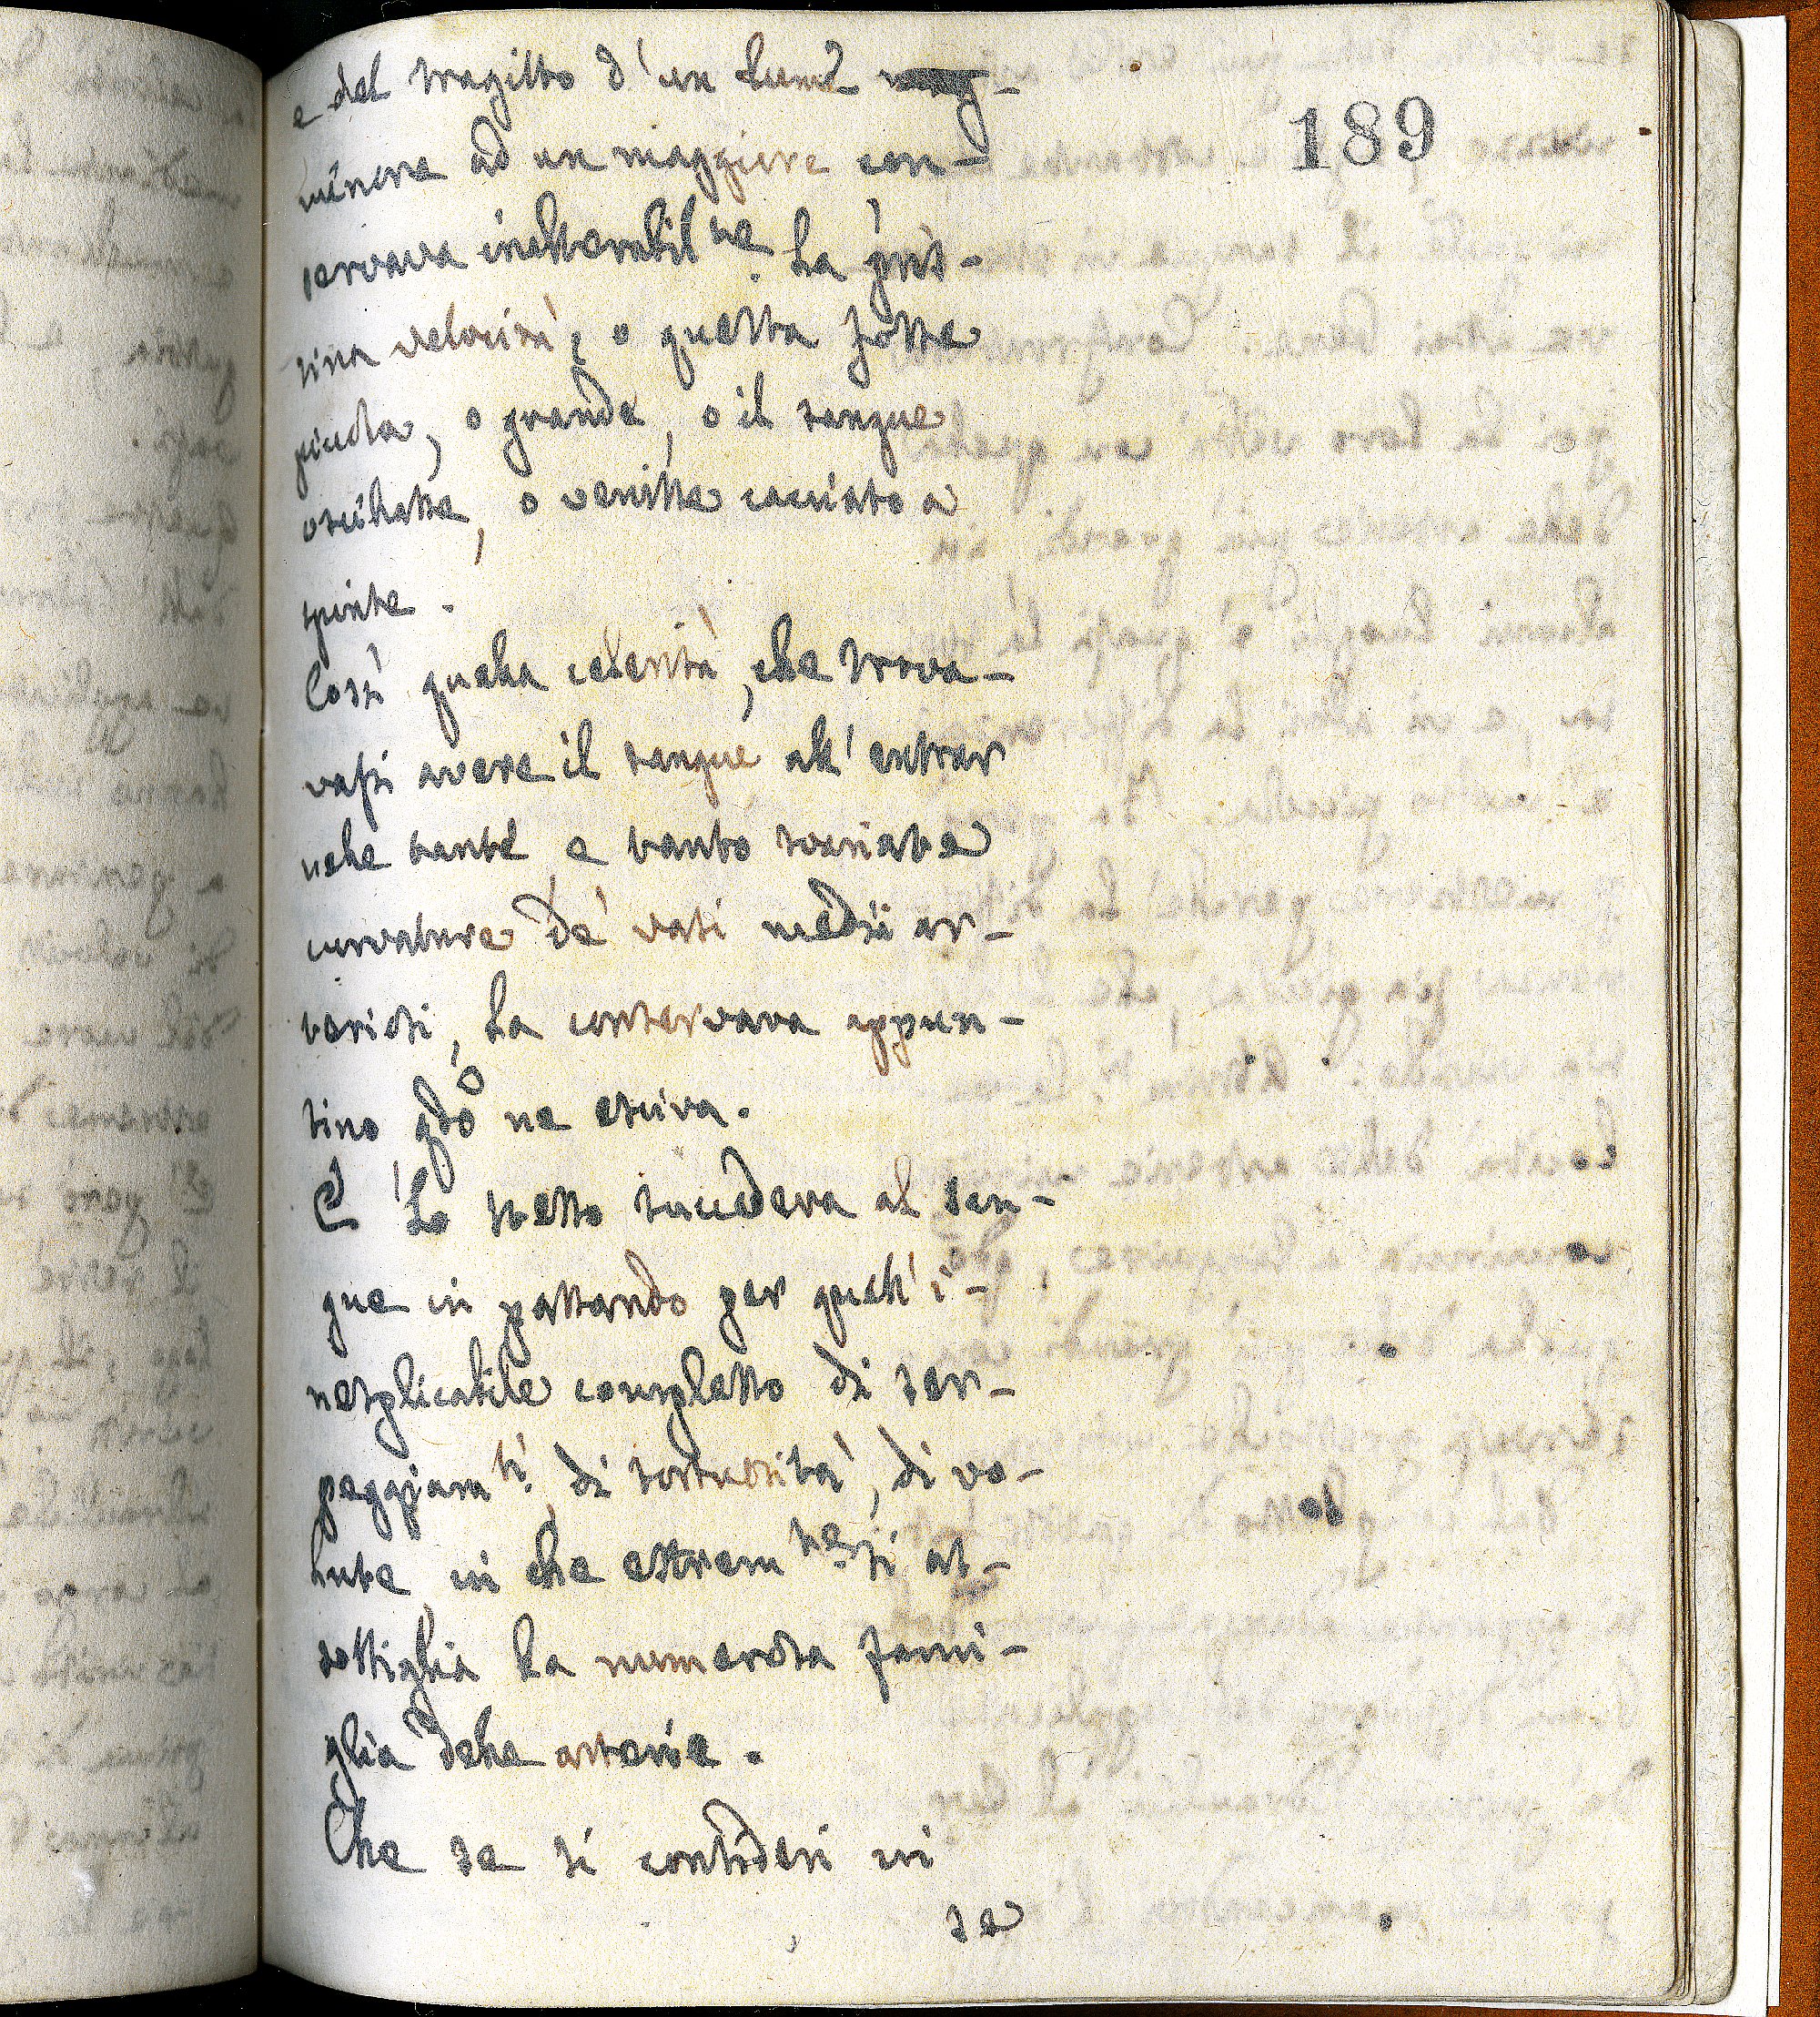 189
e del tragitto d'un lume
minore ad un maggiore con-
servava inalterabilme. la pris-
tina velocità, o questa fosse
picciola, o grande, o il sangue
oscillasse, o venisse cacciato a
spinte.
Così quella celerità, che trova-
vasi avere il sangue all'entrar
nelle tante e tanto svariate
curvature de' vasi medii ar-
teriosi, la conservava appun-
tino qdo ne esciva.
E lo stesso succedeva al san-
gue in passando per quell'i-
nesplicabile complesso di ser-
peggiamti, di tortuosità, di vo-
lute in che estremte si as-
sottiglia la numerosa fami-
glia delle arterie.
Che se si consideri in
se